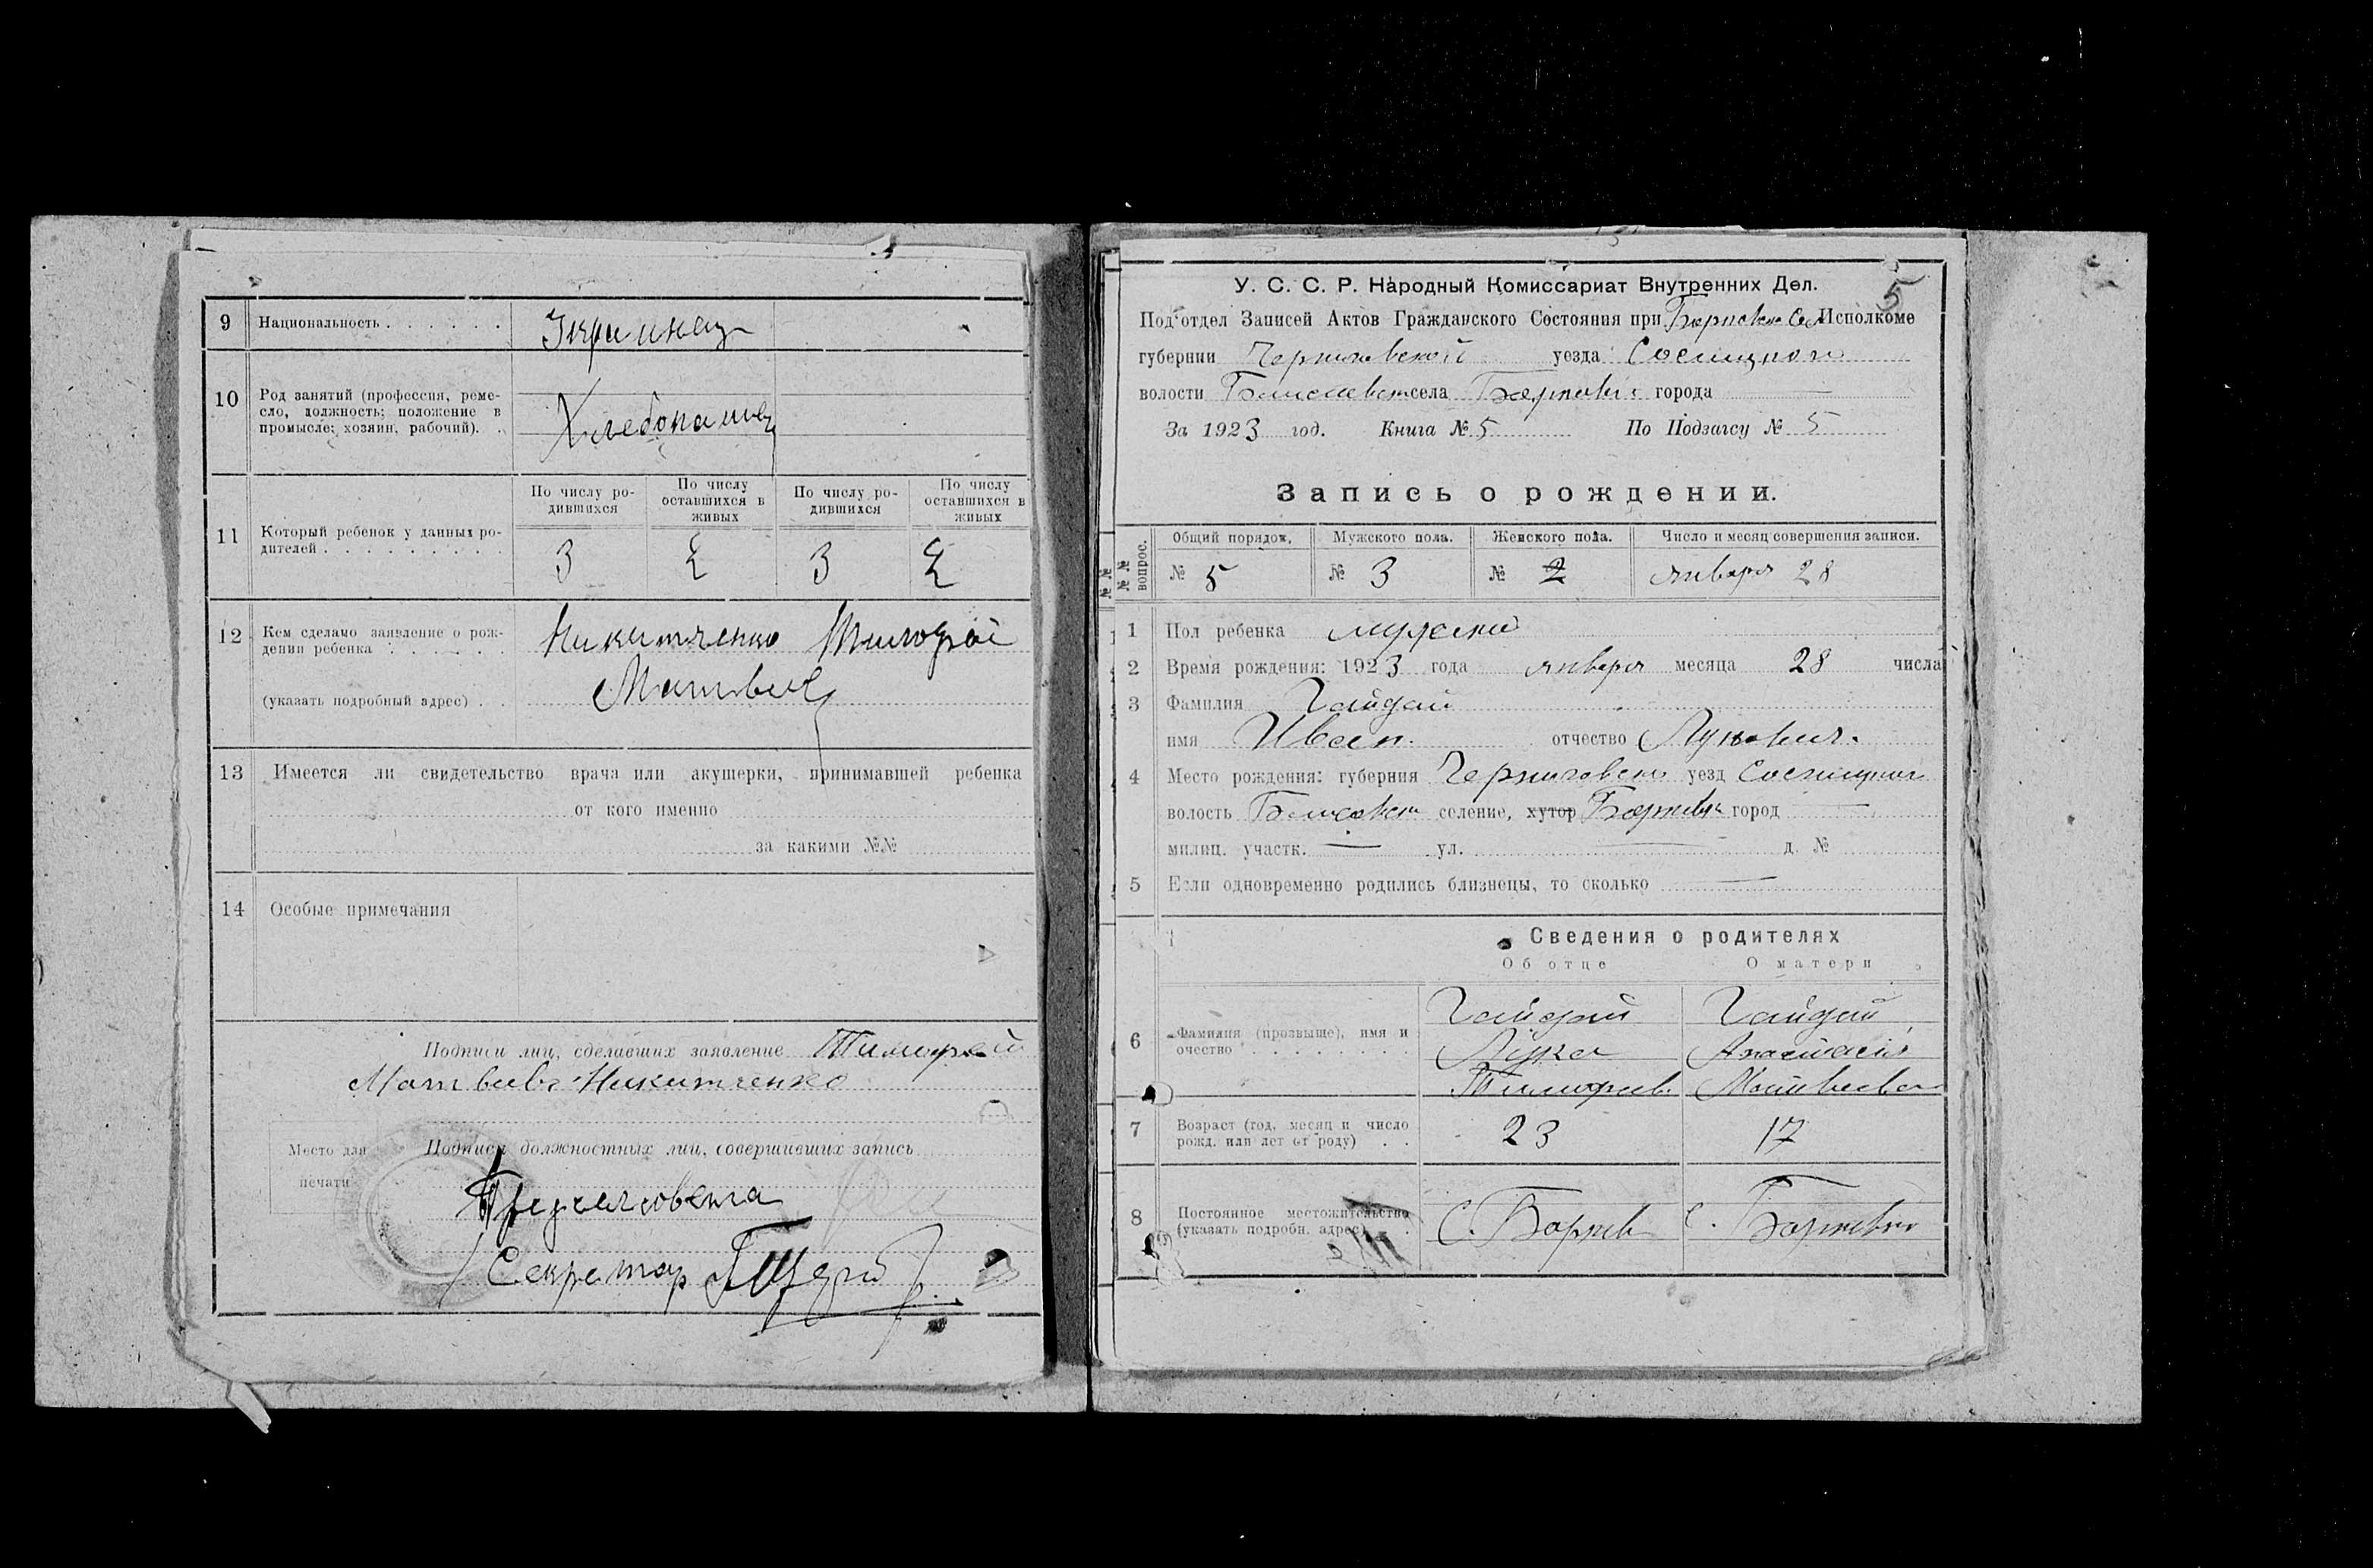 9 Национальность . . . . . . Украинец
10 Род занятий (профессия, реме-
сло, должность; положение в
промысле; хозяин, рабочий). . Хлебопашец
По числу ро-
дившихся
По числу
оставшихся в
живых
По числу ро-
дившихся
По числу
оставшихся в
живых
11 Который ребенок у данных ро-
дителей . . . . . . . . . 3 2 3 2
12 Кем сделано заявление о рож-
дении ребенка . . . . . . Никитченко Тимофей
(указать подробный адрес) . .
13 Имеется ли свидетельство врача или акушерки, принимавшей ребенка
от кого именно
за какими №№
14 Особые примечания
Подписи лиц, сделавших заявление Тимофей
Никитченко
Место для
печати
Подписи должностных лиц, совершивших запись
Секретар
5
У. С. С. Р. Народный Комиссариат Внутренних Дел.
Подотдел Записей Актов Гражданского Состояния при Исполкоме
губернии Черниговской уезда Сосницкого
волости села города
За 1923 год. Книга № 5 По Подзагсу № 5
Запись о рождении.
№ № вопрос.
Общий порядок. Мужского пола. Женского пола. Число и месяц совершения записи.
№ 5 № 3 № 2 января 28
1 Пол ребенка мужской
2 Время рождения: 1923 года января месяца 28 числа
3 Фамилия Гайдай
имя Иван. отчество Лукович.
4 Место рождения: губерния Черниговской уезд
волость селение, хутор город
милиц. участк. — ул. — д. №
5 Если одновременно родились близнецы, то сколько —
Сведения о родителях
Об отце О матери
6 Фамилия (прозвыще), имя и
очество . . . . . . . .
Гайдай Гайдай
Лука Анастасия
Тимофеев. Матвеева
7 Возраст (год, месяц и число
рожд. или лет от роду) . . 23 17
8 Постоянное местожительство
(указать подробн. адрес) . . с. с.